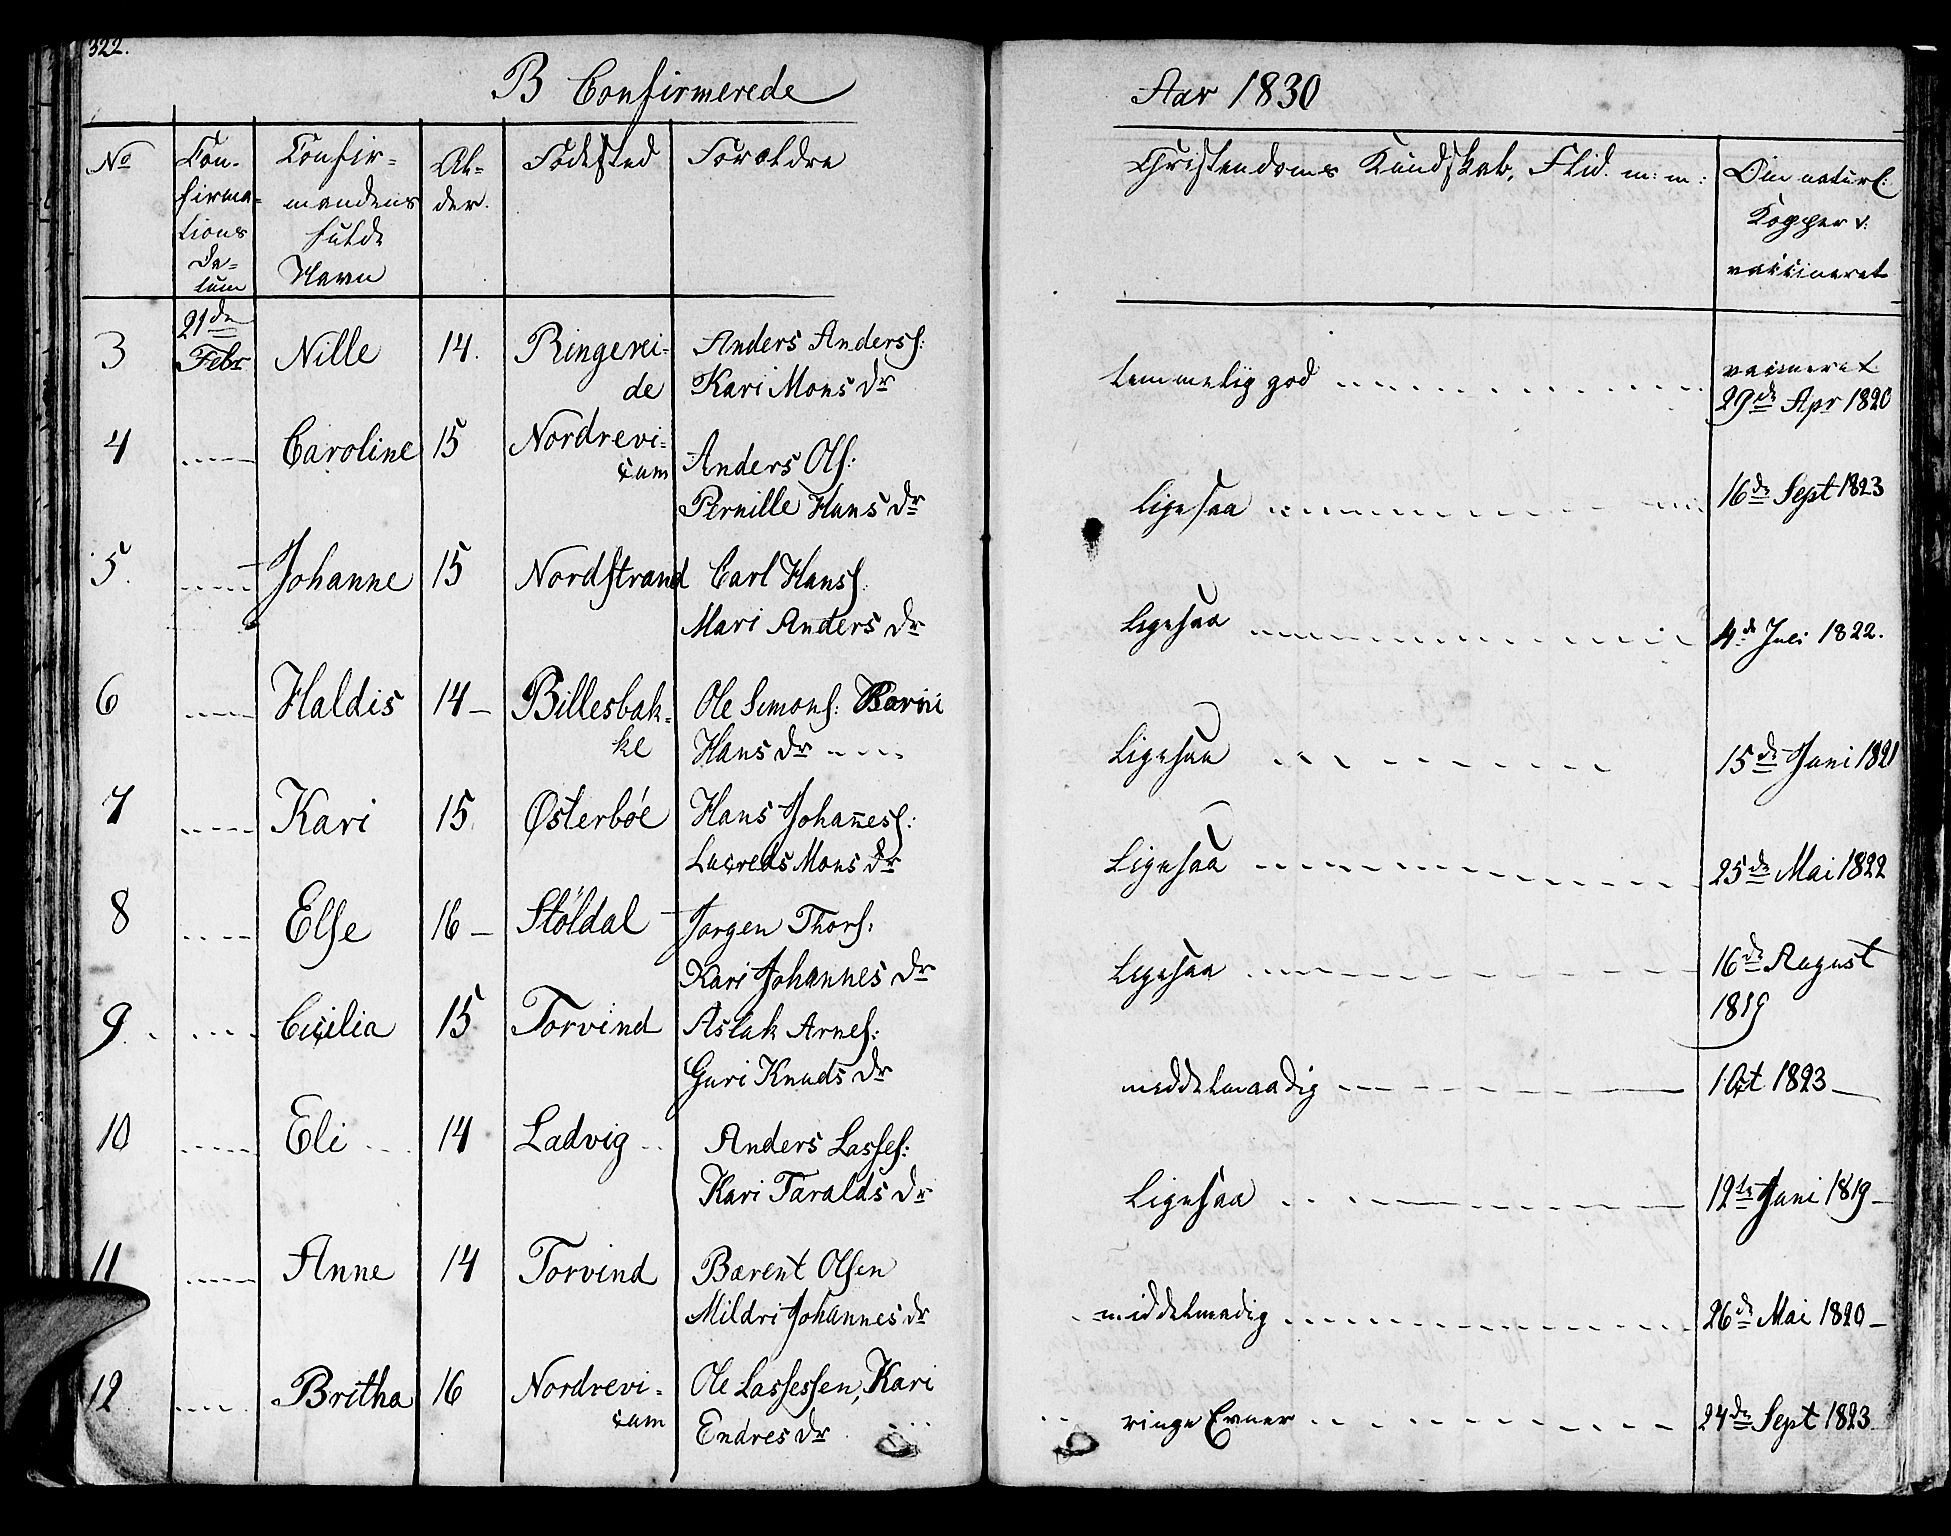 322.
B Confirmerede
Aar 1830
No
Con-
firma-
tions
Da-
tum
Confir-
mandens
fulde
Navn
Al-
der.
Födested
Forældre
Christendoms Kundskab, Flid. m: m:
Om naturl:
Kopper v:
vaccineret
3
21de
Febr
Nille
14.
Ringerei-
de
Anders Anders:
Kari Mons Dr
temmelig god
vaccineret
29de Apr 1820
4
Caroline
15
Nordrevi-
Anders Ols:
Pernille Hans Dr
ligesaa
16de Sept 1823
5.
Johanne
15
Nordstrand
Carl Hans:
Mari Anders Dr
ligesaa
4de Juli 1822.
6
Haldis
14
Billesbak-
ke
Ole Simons:
Hans Dr
Ligesaa
15de Juni 1821
7
Kari
15
Østerböe
Hans Johanes:
Mons Dr
Ligesaa
25de Mai 1822
8
Else
16
Stöldal
Jørgen Thors:
Kari Johannes Dr
Ligesaa
16de August
1819
9.
Cicilia
15
Torvind
Aslak Arnes:
Guri Knuds Dr
middelmaadig
1 Oct 1823
10
Eli
14
Ladvig
Anders Lasses:
Kari Taralds Dr
Ligesaa
12te Juni 1819
11
Anne
14
Torvind
Barent Olsen
Mildri Johannes dr
middelmadig
26de Mai 1820
12
Britha
16
Nordrevi-
Ole Lassessen, Kari
Endres Dr
ringe Evner
24de Sept 1823